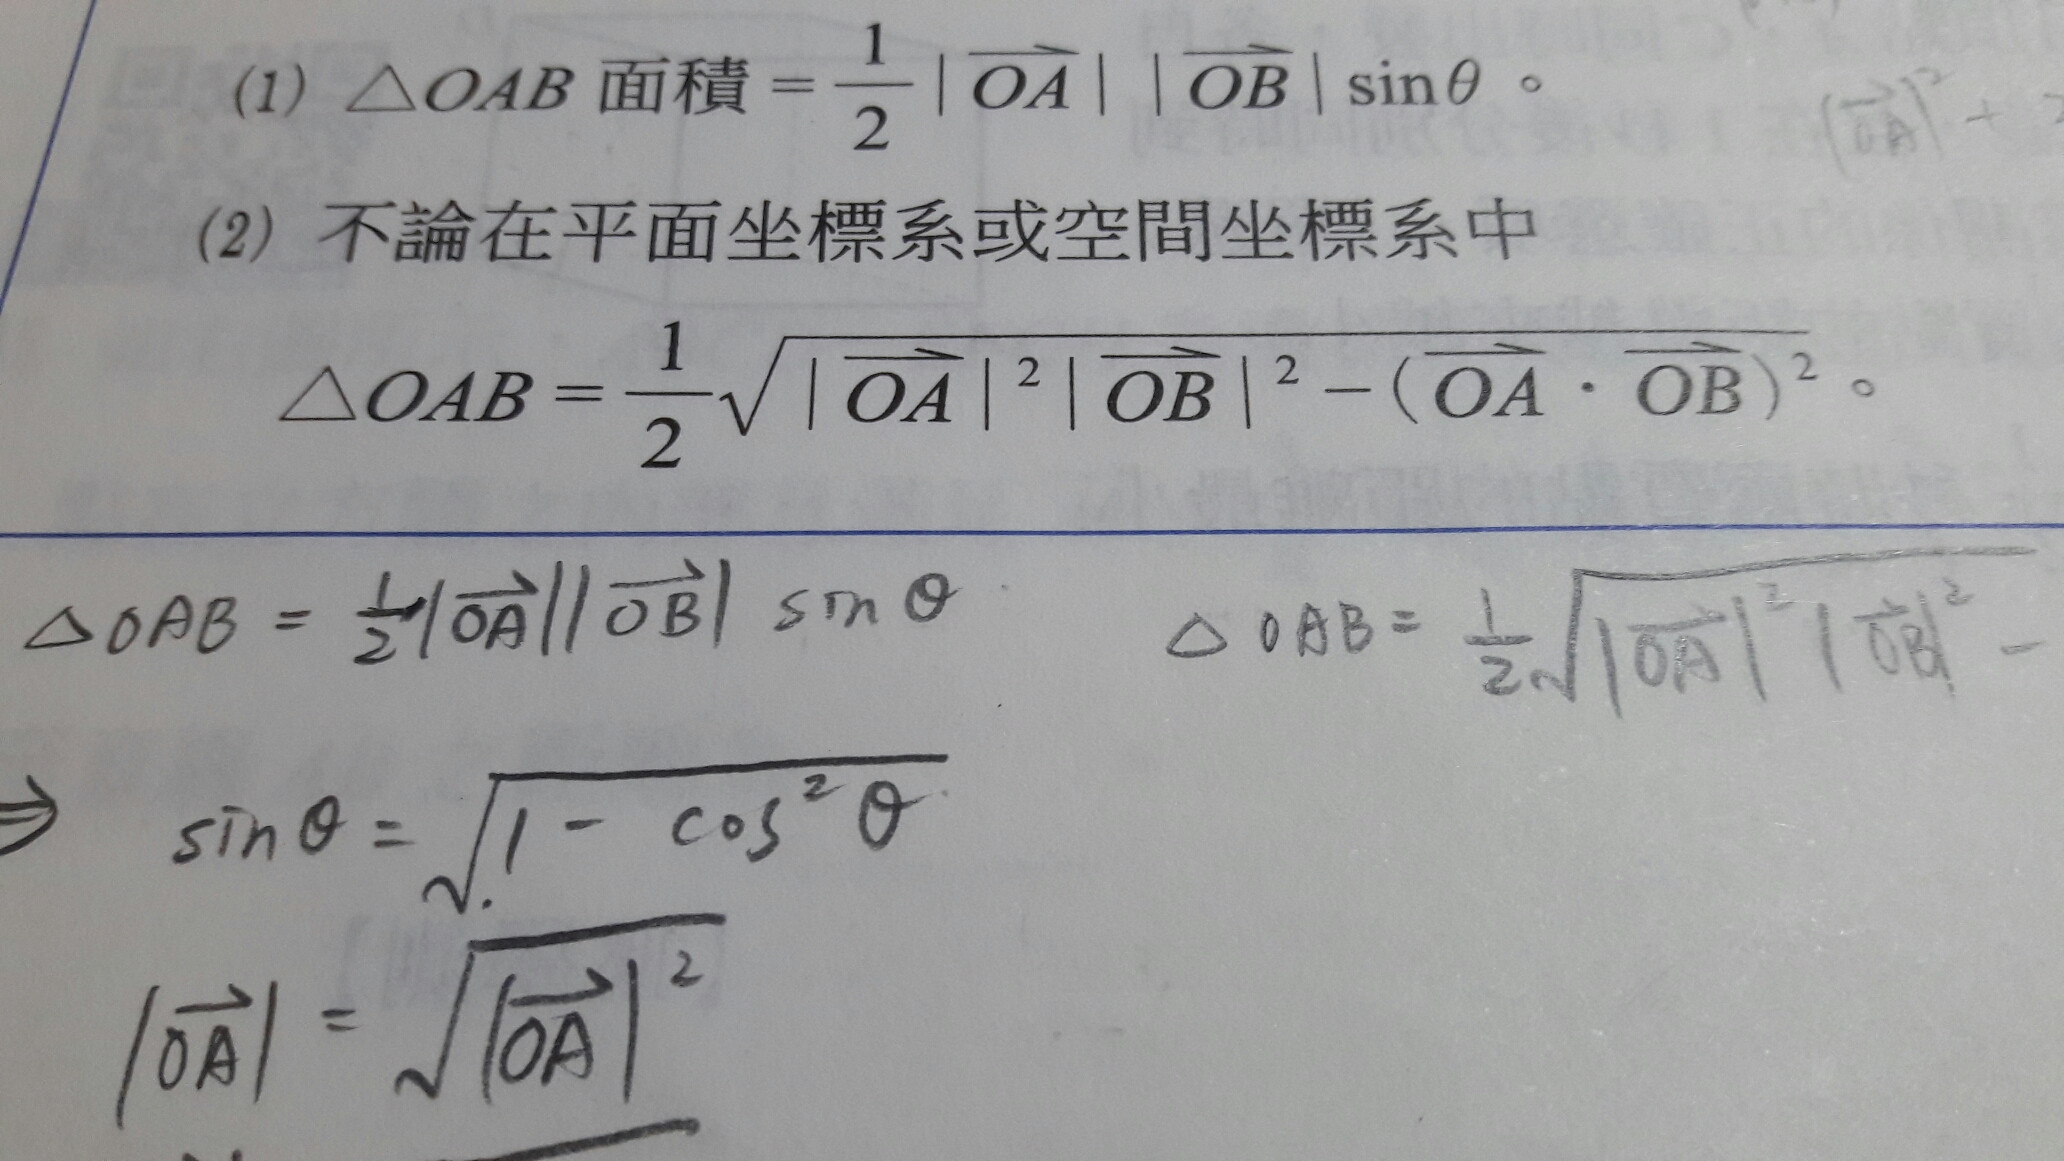 (1) △OAB 面積 = 1/2 |OA⃗| |OB⃗| sinθ。
(2) 不論在平面坐標系或空間坐標系中
△OAB = 1/2 √(|OA⃗|²|OB⃗|² − (OA⃗ · OB⃗)²)。
|OA⃗|² +
△OAB = 1/2 |OA⃗||OB⃗| sin θ
△OAB = 1/2 √(|OA⃗|² |OB⃗|² −
⇒ sin θ = √(1 − cos² θ)
|OA⃗| = √(|OA⃗|²)